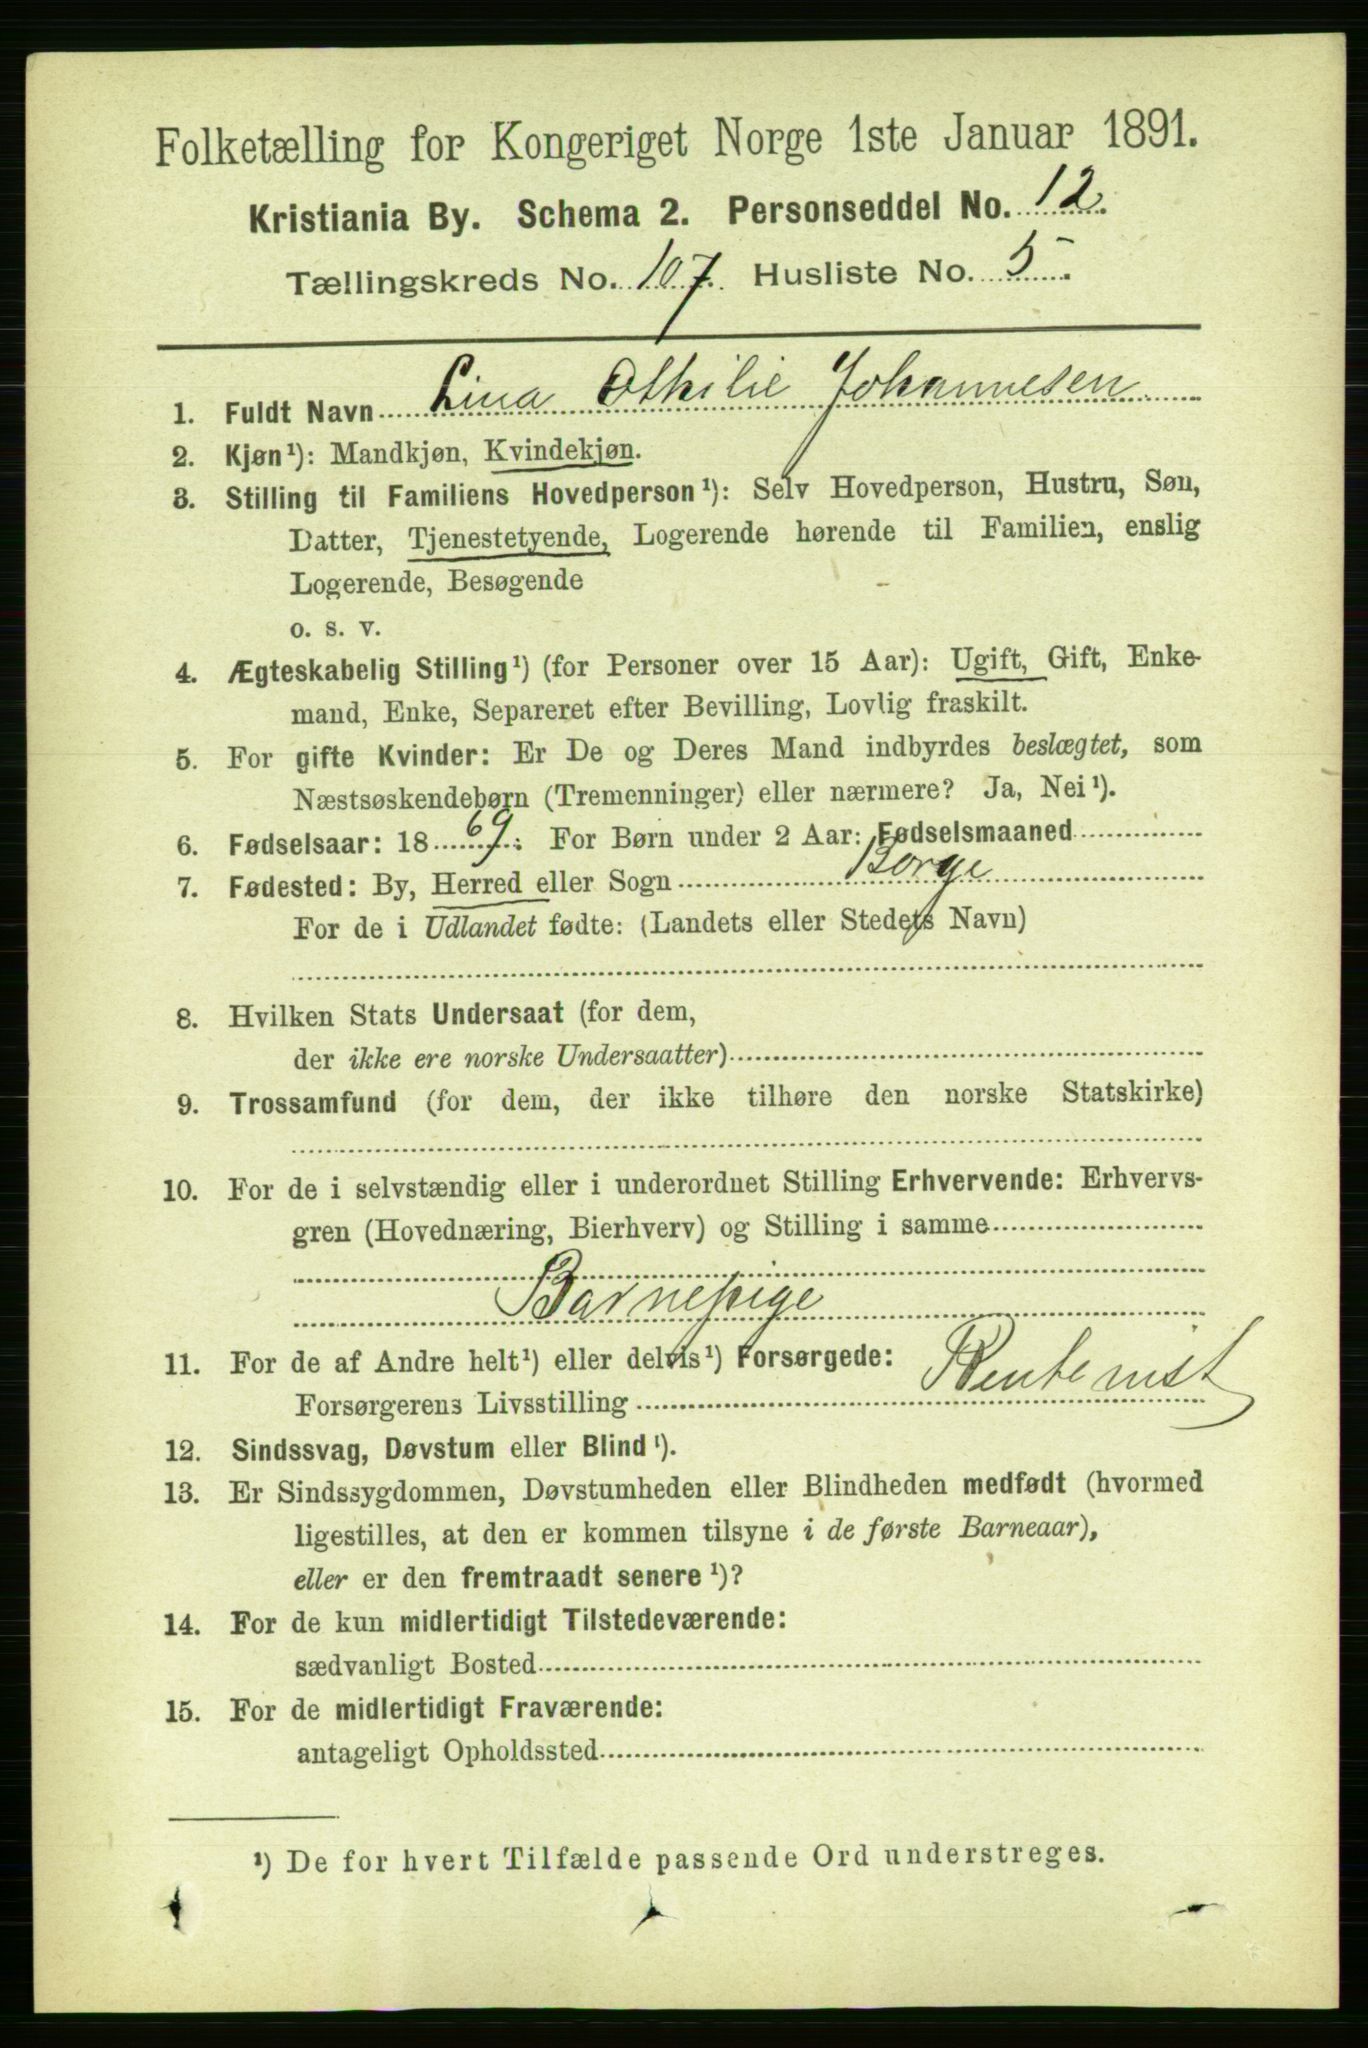 Folketælling for Kongeriget Norge 1ste Januar 1891.
Kristiania By. Schema 2. Personseddel No. 12.
Tællingskreds No. 107. Husliste No. 5.
1. Fuldt Navn Lina Othilie Johannesen
2. Kjøn¹): Mandkjøn, Kvindekjøn.
3. Stilling til Familiens Hovedperson¹): Selv Hovedperson, Hustru, Søn,
Datter, Tjenestetyende, Logerende hørende til Familien, enslig
Logerende, Besøgende
o. s. v.
4. Ægteskabelig Stilling¹) (for Personer over 15 Aar): Ugift, Gift, Enke-
mand, Enke, Separeret efter Bevilling, Lovlig fraskilt.
5. For gifte Kvinder: Er De og Deres Mand indbyrdes beslægtet, som
Næstsøskendebørn (Tremenninger) eller nærmere? Ja, Nei¹).
6. Fødselsaar: 1869. For Børn under 2 Aar: Fødselsmaaned
7. Fødested: By, Herred eller Sogn Borge
For de i Udlandet fødte: (Landets eller Stedets Navn)
8. Hvilken Stats Undersaat (for dem,
der ikke ere norske Undersaatter)
9. Trossamfund (for dem, der ikke tilhøre den norske Statskirke)
10. For de i selvstændig eller i underordnet Stilling Erhvervende: Erhvervs-
gren (Hovednæring, Bierhverv) og Stilling i samme
Barnepige
11. For de af Andre helt¹) eller delvis¹) Forsørgede:
Forsørgerens Livsstilling Rentenist
12. Sindssvag, Døvstum eller Blind¹).
13. Er Sindssygdommen, Døvstumheden eller Blindheden medfødt (hvormed
ligestilles, at den er kommen tilsyne i de første Barneaar),
eller er den fremtraadt senere¹)?
14. For de kun midlertidigt Tilstedeværende:
sædvanligt Bosted
15. For de midlertidigt Fraværende:
antageligt Opholdssted
¹) De for hvert Tilfælde passende Ord understreges.